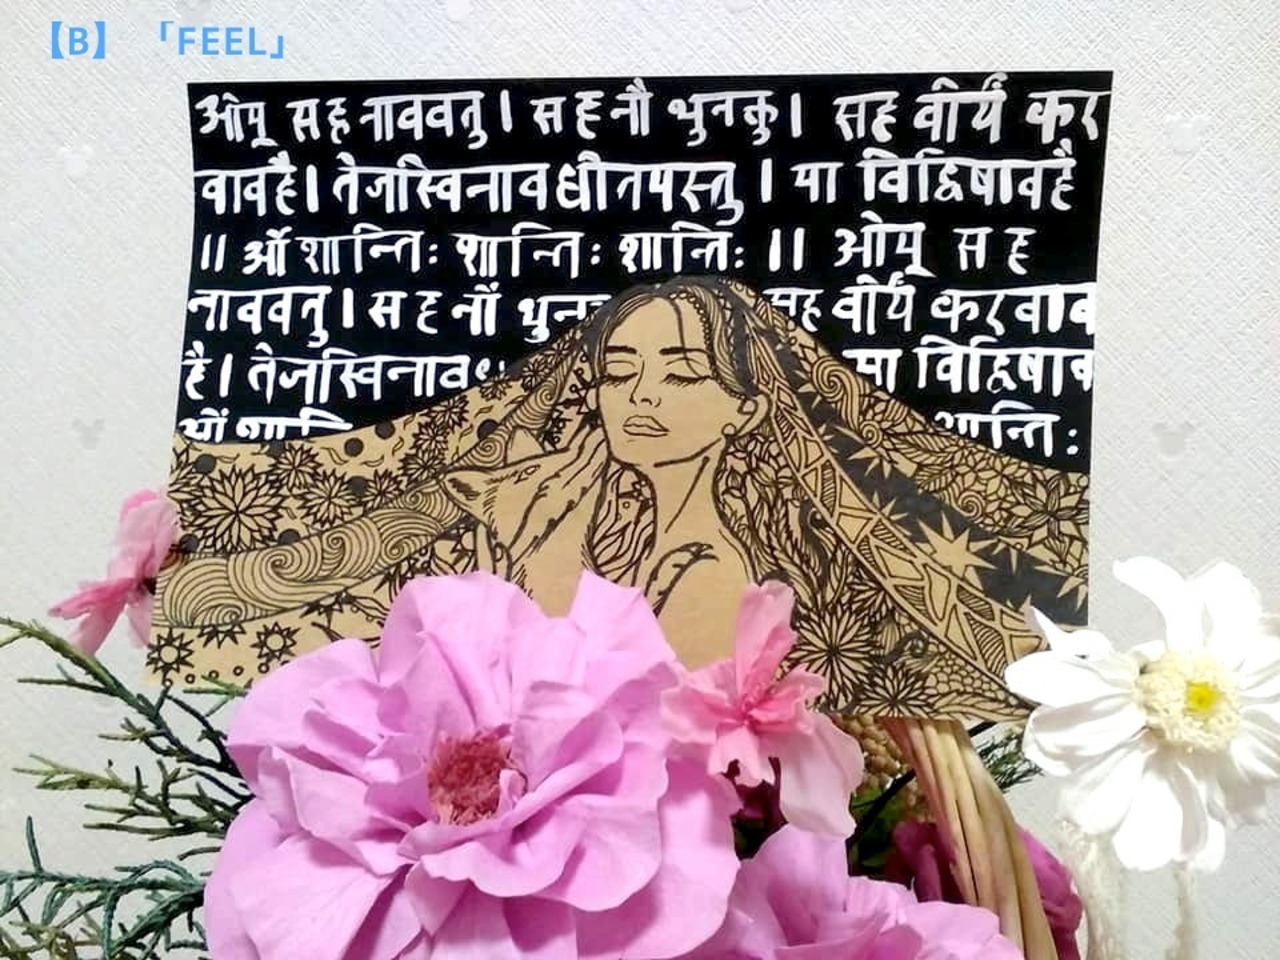 【B】 「FEEL」
ओम् सह नाववतु । सह नौ भुनक्तु । सह वीर्यं कर
वावहै । तेजस्विनावधीतमस्तु । मा विद्विषावहै
॥ ओं शान्तिः शान्तिः शान्तिः ॥ ओम् सह
नाववतु । सह नौं वीर्यं करवाव
है । तेजस्विनाव मा विद्विषाव
ओं शान्ति: